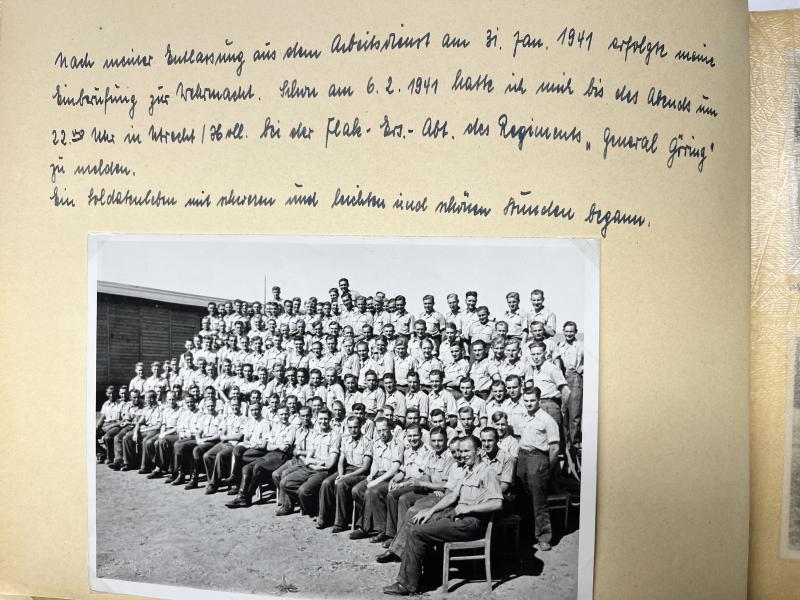 Nach meiner Entlassung aus dem Arbeitsdienst am 31. Jan. 1941 erfolgte meine
Einberufung zur Wehrmacht. Schon am 6. 2. 1941 hatte ich mich bis des Abends um
22.00 Uhr in Utrecht / Holl. bei der Flak-Ers.-Abt. des Regiments „General Göring"
zu melden.
Ein Soldatenleben mit schweren und leichten und schönen Stunden begann.